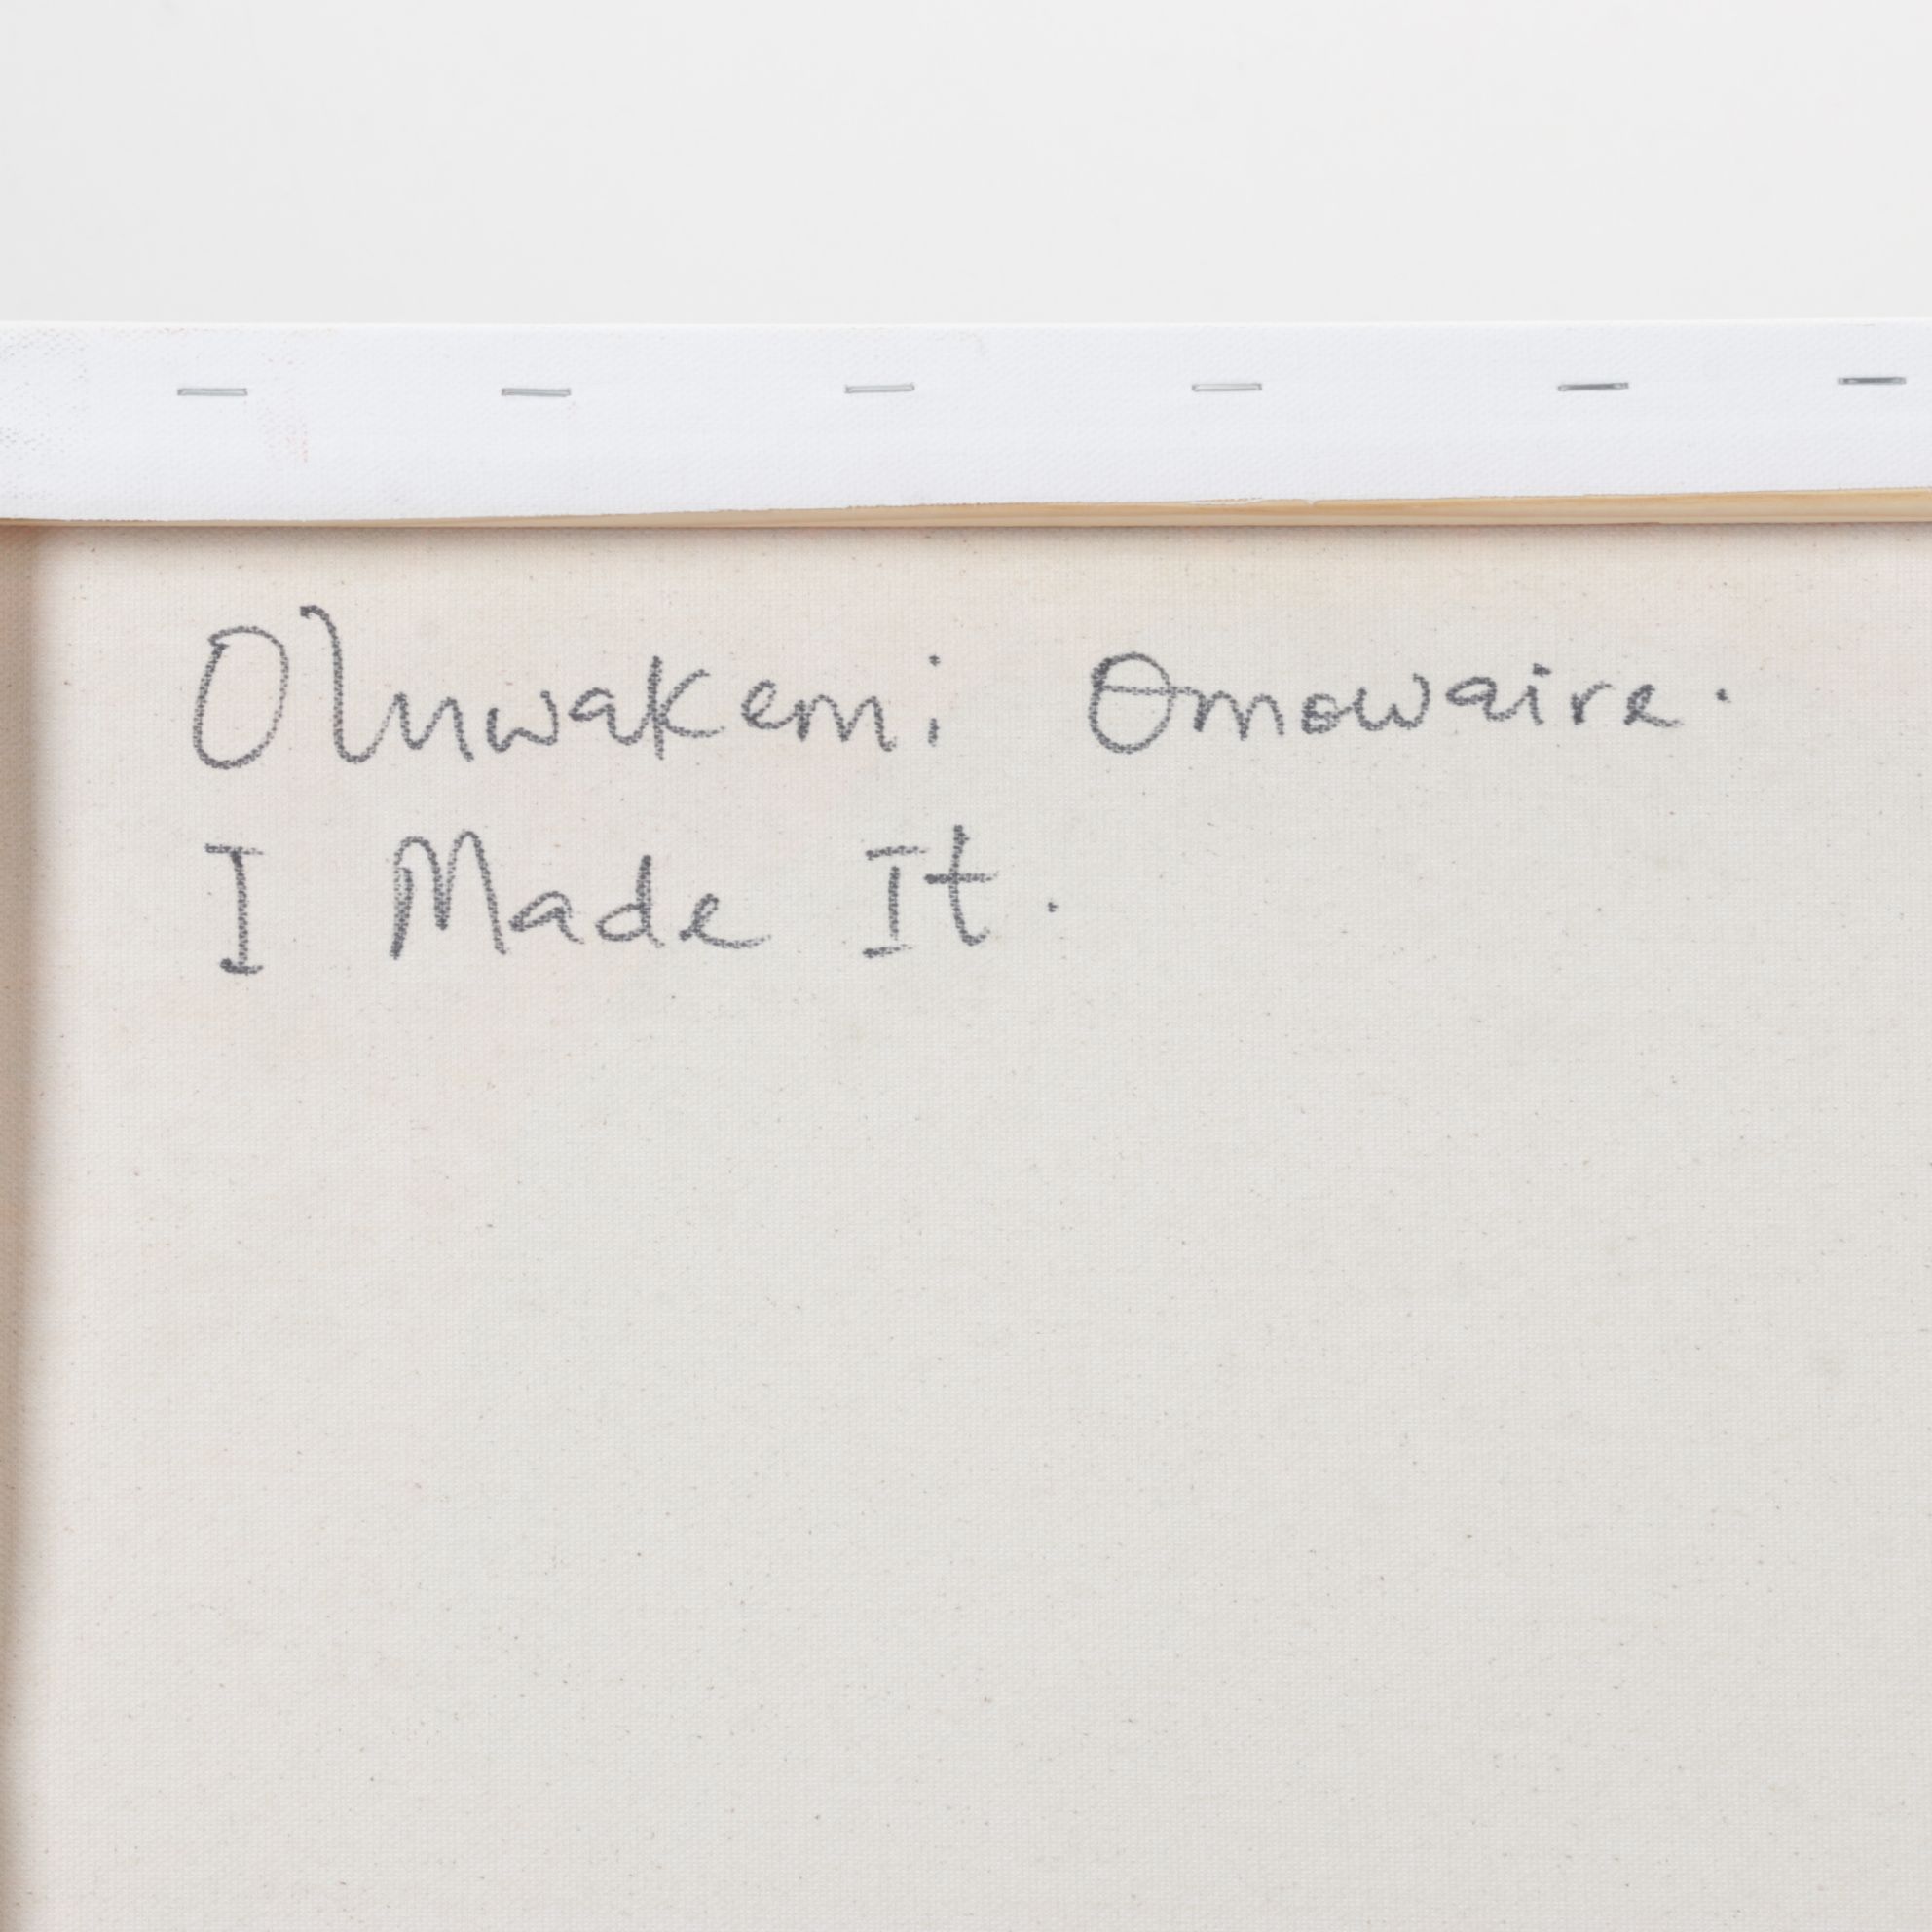 Oluwakemi Omowaire.
I Made It.